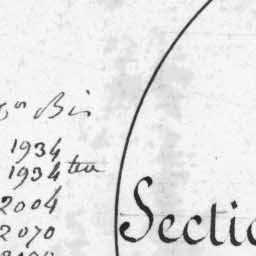 on Bis
1934
1934 ter
2004
2070
Sectio